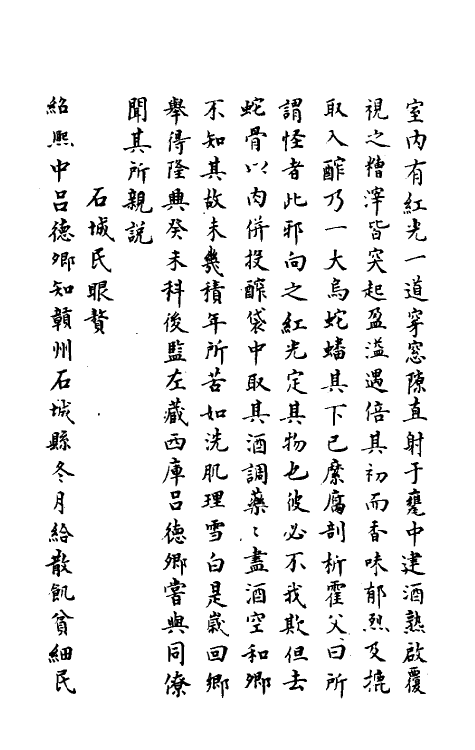 室內有紅光一道穿窓隙直射于甕中逮酒熟啟覆
視之糟滓皆突起盈溢遇倍其初而香味郁烈及摝
取入醡乃一大烏蛇蟠其下已糜腐剖析霍父曰所
謂怪者此邪向之紅光定其物也彼必不我欺但去
蛇骨以肉併投醡袋中取其酒調藥〻盡酒空和卿
不知其故未幾積年所苦如洗肌理雪白是嵗回鄉
舉得隆興癸未科後監左藏西庫呂德卿嘗與同僚
聞其所親說
石城民眼贅
紹熙中呂德卿知贛州石城縣冬月給散飢貧細民